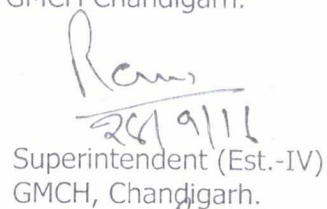 GMCH Chandigarh.
28/9/16
Superintendent (Est.-IV)
GMCH, Chandigarh.